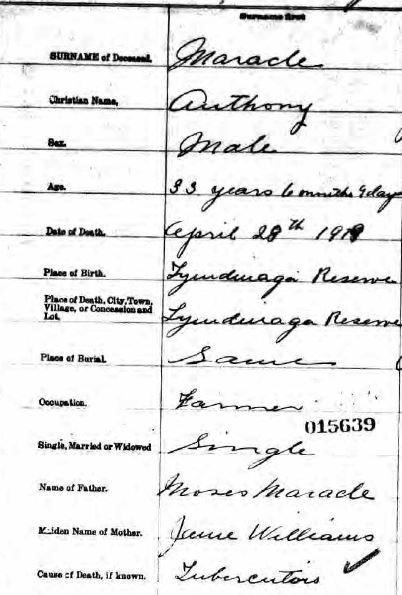 Surname first
SURNAME of Deceased. Maracle
Christian Name, Anthony
Sex. Male
Age. 33 years 6 months 9 days
Date of Death. April 28th 1919
Place of Birth. Tyendinaga Reserve
Place of Death, City, Town,
Village, or Concession and
Lot. Tyendinaga Reserve
Place of Burial. Same
Occupation. Farmer
015639
Single, Married or Widowed Single
Name of Father. Moses Maracle
Maiden Name of Mother. Jane Williams
Cause of Death, if known. Tuberculosis